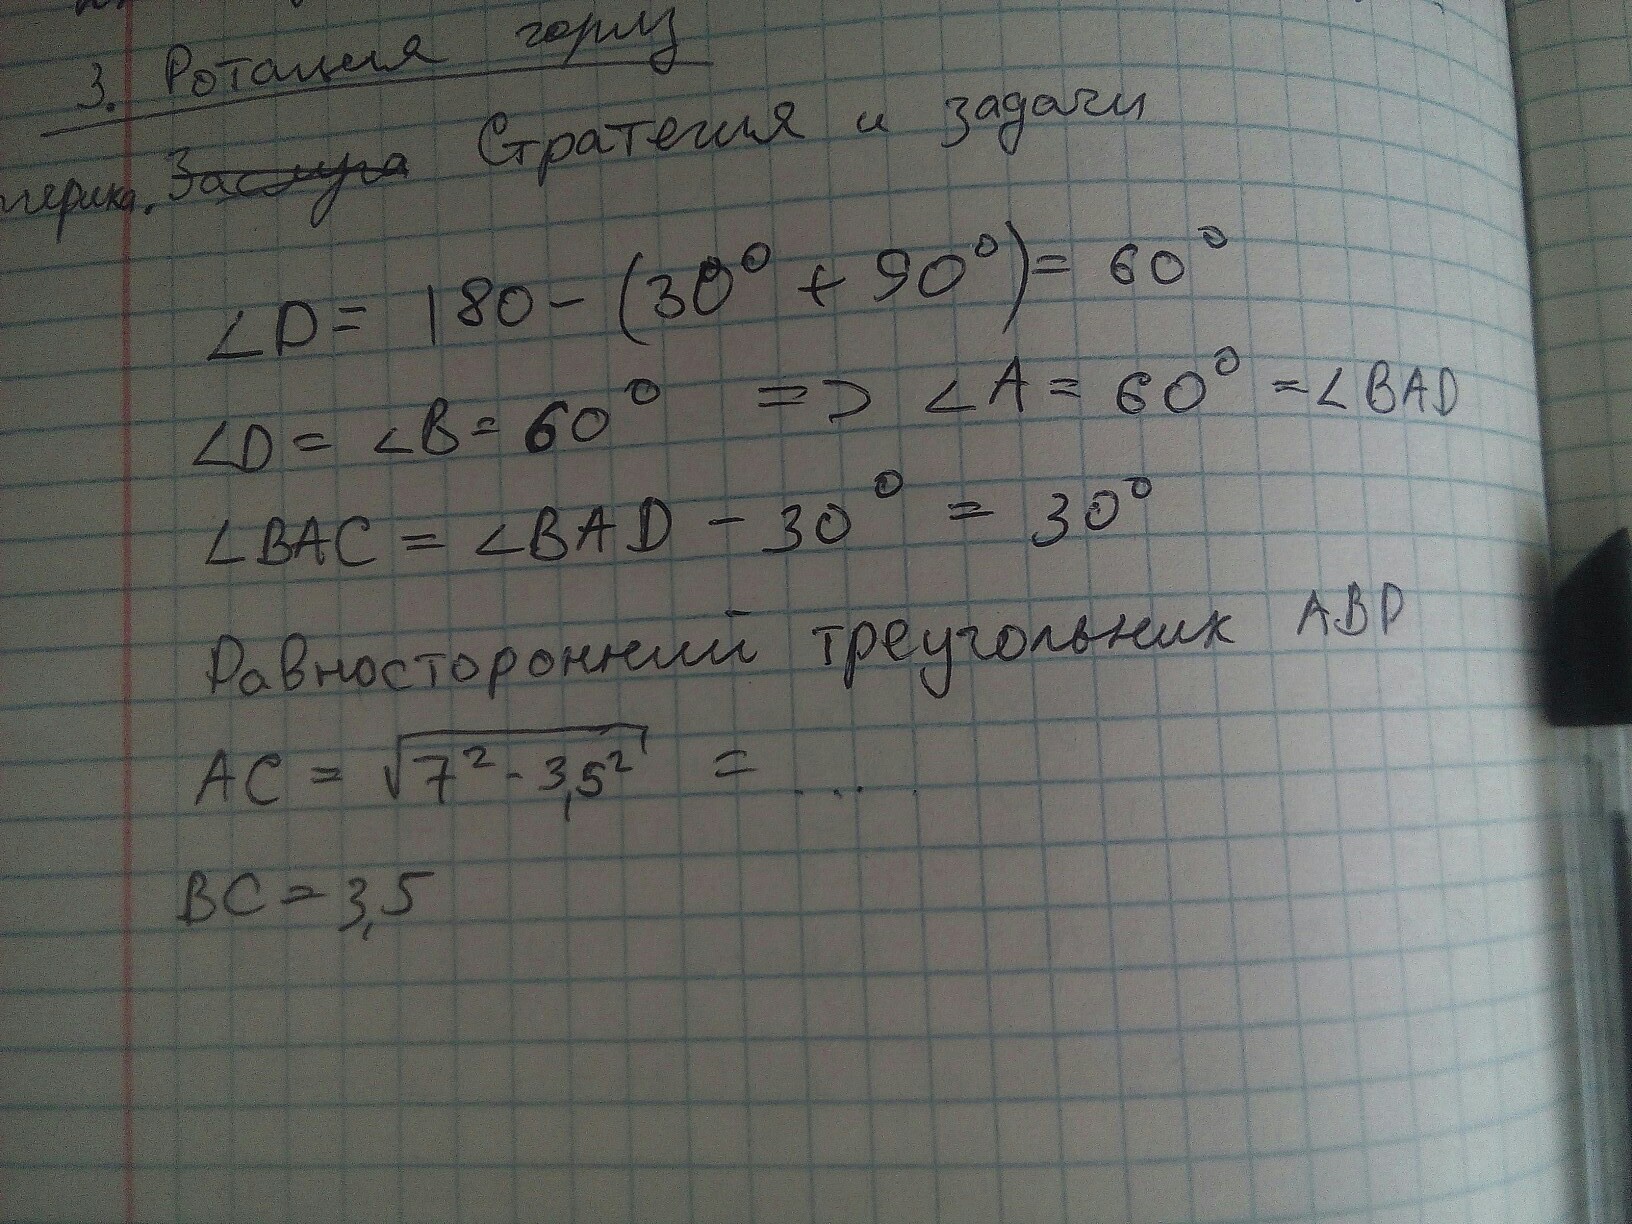 3. Ротация горлз
Заслуга Стратегия и задачи
∠D = 180 - (30° + 90°) = 60°
∠D = ∠B = 60° => ∠A = 60° = ∠BAD
∠BAC = ∠BAD - 30° = 30°
Равносторонний треугольник ABD
AC = √7² - 3,5² = ...
BC = 3,5